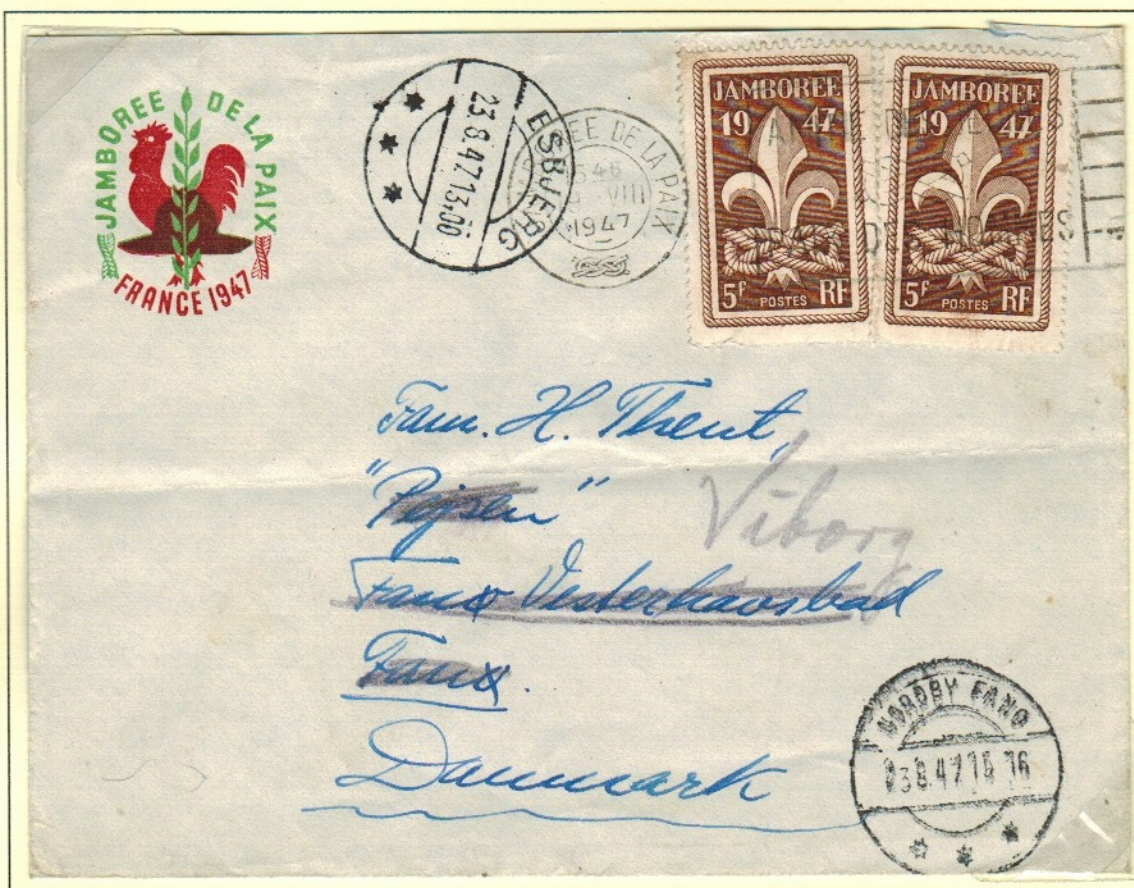 JAMBOREE DE LA PAIX
FRANCE 1947
ESBJERG
23.8.47.13.00
REE DE LA PAIX
VIII
1947
JAMBOREE
19 47
5f POSTES RF
JAMBOREE
19 47
5f POSTES RF
Fam. H. Thent,
"Pejsen"
Viborg
Fanø Vesterhavsbad
Fanø.
Danmark
NORDBY FANØ